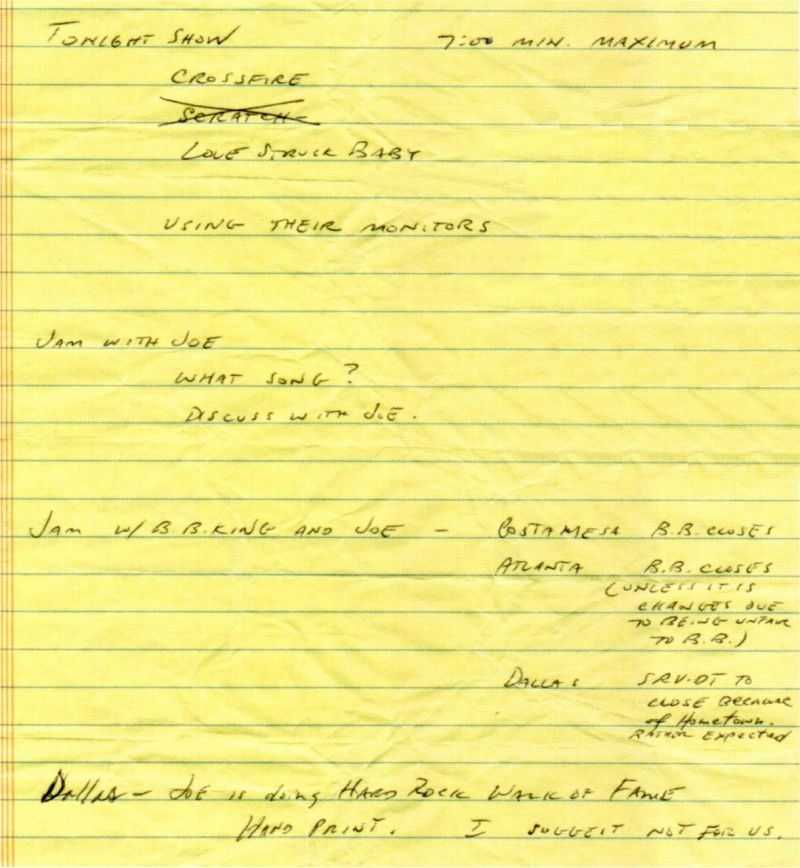 TONIGHT SHOW 7:00 MIN. MAXIMUM
CROSSFIRE
SCRATCH-
LOVE STRUCK BABY
USING THEIR MONITORS
JAM WITH JOE
WHAT SONG?
DISCUSS WITH JOE.
JAM W/ B.B. KING AND JOE - COSTA MESA B.B. CLOSES
ATLANTA B.B. CLOSES
(UNLESS IT IS
CHANGES DUE
TO BEING UNFAIR
TO B.B.)
DALLAS SRV·DT TO
CLOSE BECAUSE
of Hometown.
RATHER Expected
Dallas - JOE is doing HARD ROCK WALK OF FAME
HAND PRINT. I SUGGEST NOT FOR US.